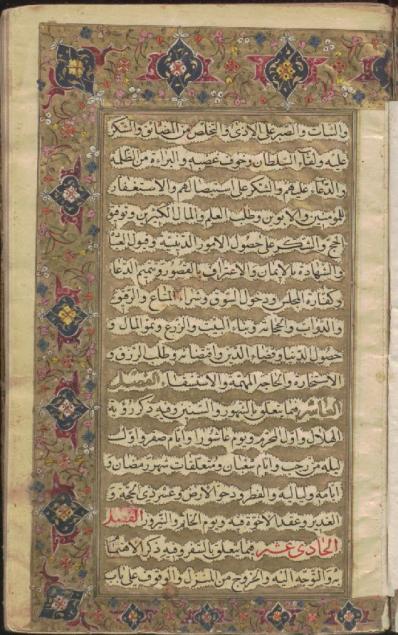 والثبات والصبر على الاذى والتخلص من المضائق والشكر
عليه ولقاء السلطان وخوف غضبه والبراءة من الظلمة
والدعاء عليهم والشكر على استيصالهم والاستغفار
للمؤمنين والابوين وطلب العلم والمال الكثير وتوفيق
الحج والشكر على حصول الامور الدينية وقبول
والشهادة بالايمان والاعتراف بالقصور وتتميم الدعا
وكفارة المجلس ودخول السوق وشراء المتاع والرقيق
والدواب والحجامة وبناء البيت والزرع ونمو المال و
حصول الدنيا وقضاء الدين واقتضائه وطلب الرزق و
الاستخارة والحاجة المهمة والاستسقاء الفصل
العاشر فيما يتعلق بالشهور والسنة وفيه ذكر رؤية
الهلال واول المحرم ويوم عاشورا وايام صفر واول
ليلة من رجب وايام شعبان ومتعلقات شهر رمضان و
ايامه ولياليه والفطر ودحو الارض وعشر ذي الحجة و
الغدير وعقد الاخوة فيه ويوم الخاتم والنيروز الفصل
الحادي عشر فيما يتعلق بالسفر وفيه ذكر
به والتوجه اليه والخروج من المنزل والوقوف على باب